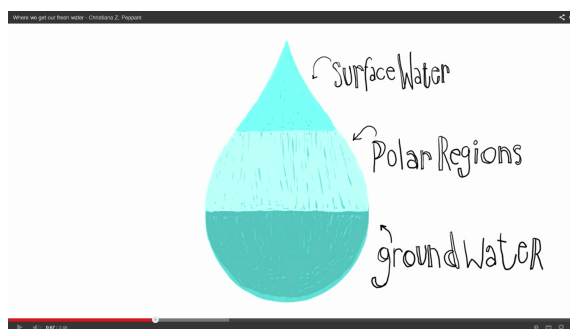 Where we get our fresh water - Christiana Z. Peppard
Surface Water
Polar Regions
ground WateR